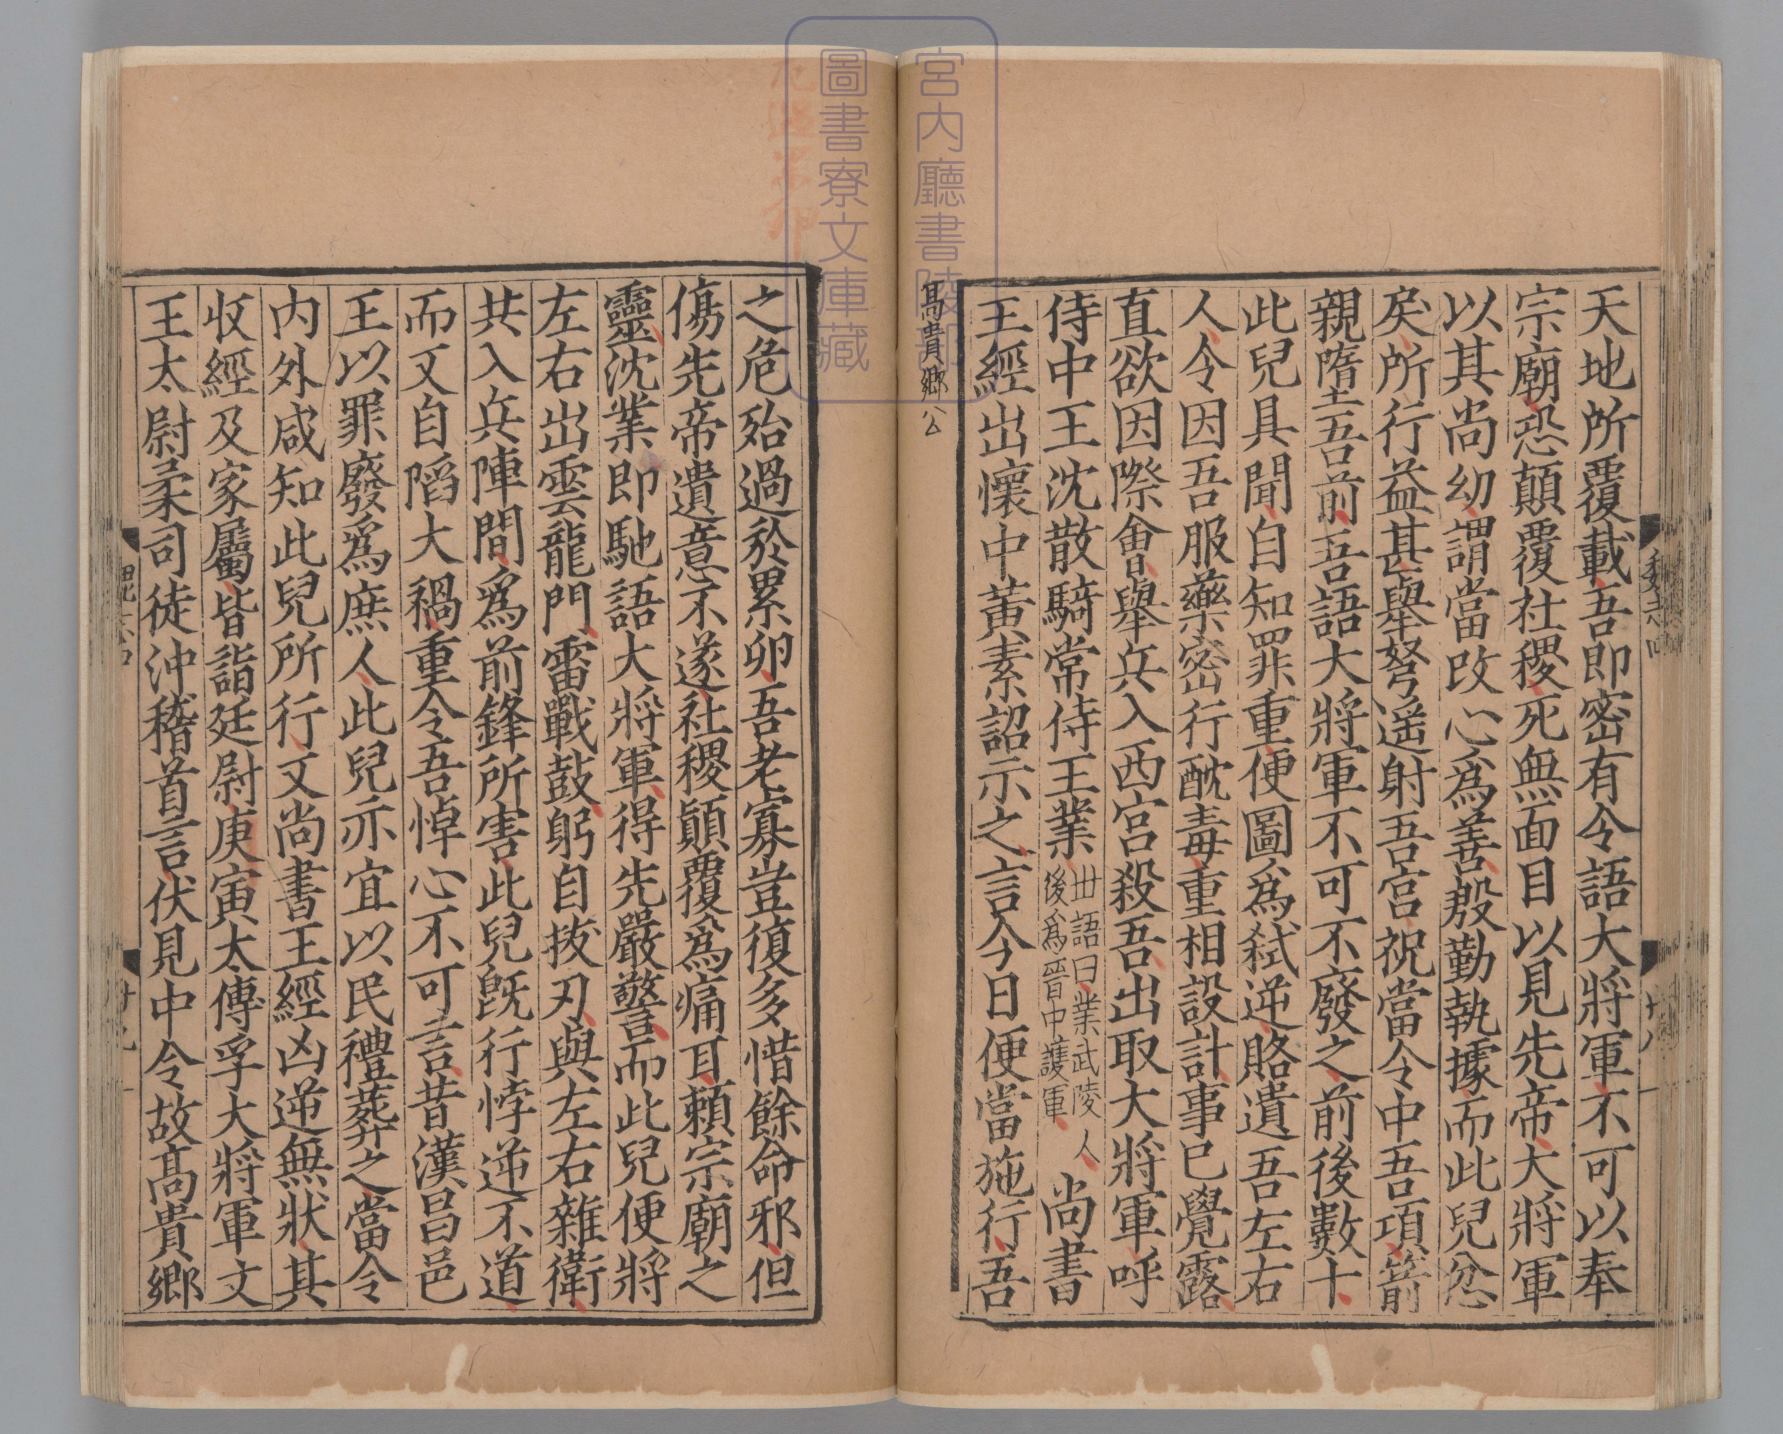 天地所覆載吾即密有令語大將軍不可以奉
宗廟恐顛覆社稷死無面目以見先帝大將軍
以其尚幼謂當改心爲善殷勤執據而此兒忿
戾所行益甚舉弩遙射吾宮祝當令中吾項箭
親墮吾前吾語大將軍不可不廢之前後數十
此兒具聞自知罪重便圖爲弑逆賂遺吾左右
人令因吾服藥密行酖毒重相設計事已覺露
直欲因際會舉兵入西宮殺吾出取大將軍呼
侍中王沈散騎常侍王業世語曰業武陵人後爲晉中護軍尚書
王經出懷中黃素詔示之言今日便當施行吾
高貴鄉公
之危殆過於累卵吾老寡豈復多惜餘命邪但
傷先帝遺意不遂社稷顛覆爲痛耳賴宗廟之
靈沈業即馳語大將軍得先嚴警而此兒便將
左右出雲龍門雷戰鼓躬自拔刃與左右雜衛
共入兵陣間爲前鋒所害此兒旣行悖逆不道
而又自陷大禍重令吾悼心不可言昔漢昌邑
王以罪廢爲庶人此兒亦宜以民禮葬之當令
內外咸知此兒所行又尚書王經凶逆無狀其
收經及家屬皆詣廷尉庚寅太傅孚大將軍文
王太尉柔司徒沖稽首言伏見中令故高貴鄉
魏志四
十八
宮內廳書陵部
圖書寮文庫藏